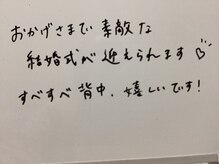 おかげさまで素敵な
結婚式が迎えられます♡
すべすべ背中、嬉しいです!